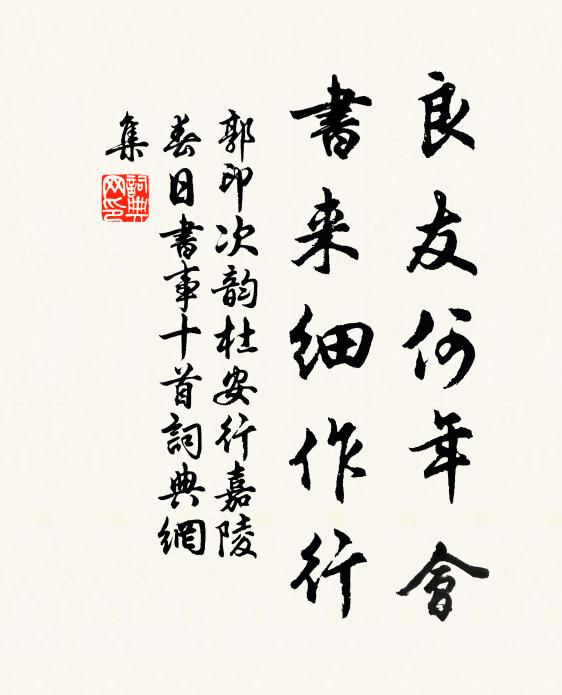 良友何年會
書来细作行
郭印次韵杜安行嘉陵
春日書事十首詞典網
集
詞典網印